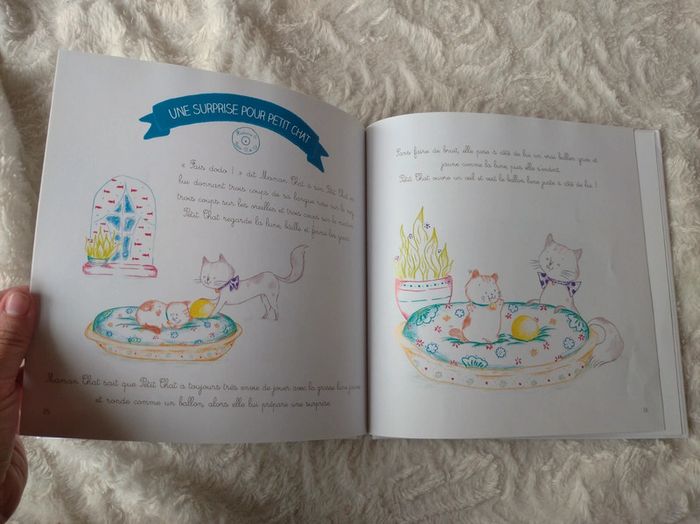 UNE SURPRISE POUR PETIT CHAT
« Fais dodo ! » dit Maman Chat à son Petit Chat en
lui donnant trois coups de sa langue rose sur le nez,
trois coups sur les oreilles et trois coups sur le menton.
Petit Chat regarde la lune, bâille et ferme les yeux.
Maman Chat sait que Petit Chat a toujours très envie de jouer avec la grosse lune jaune
et ronde comme un ballon, alors elle lui prépare une surprise.
Sans faire de bruit, elle pose à côté de lui un vrai ballon gros et
jaune comme la lune puis elle s'endort.
Petit Chat ouvre un œil et voit le ballon lune juste à côté de lui !